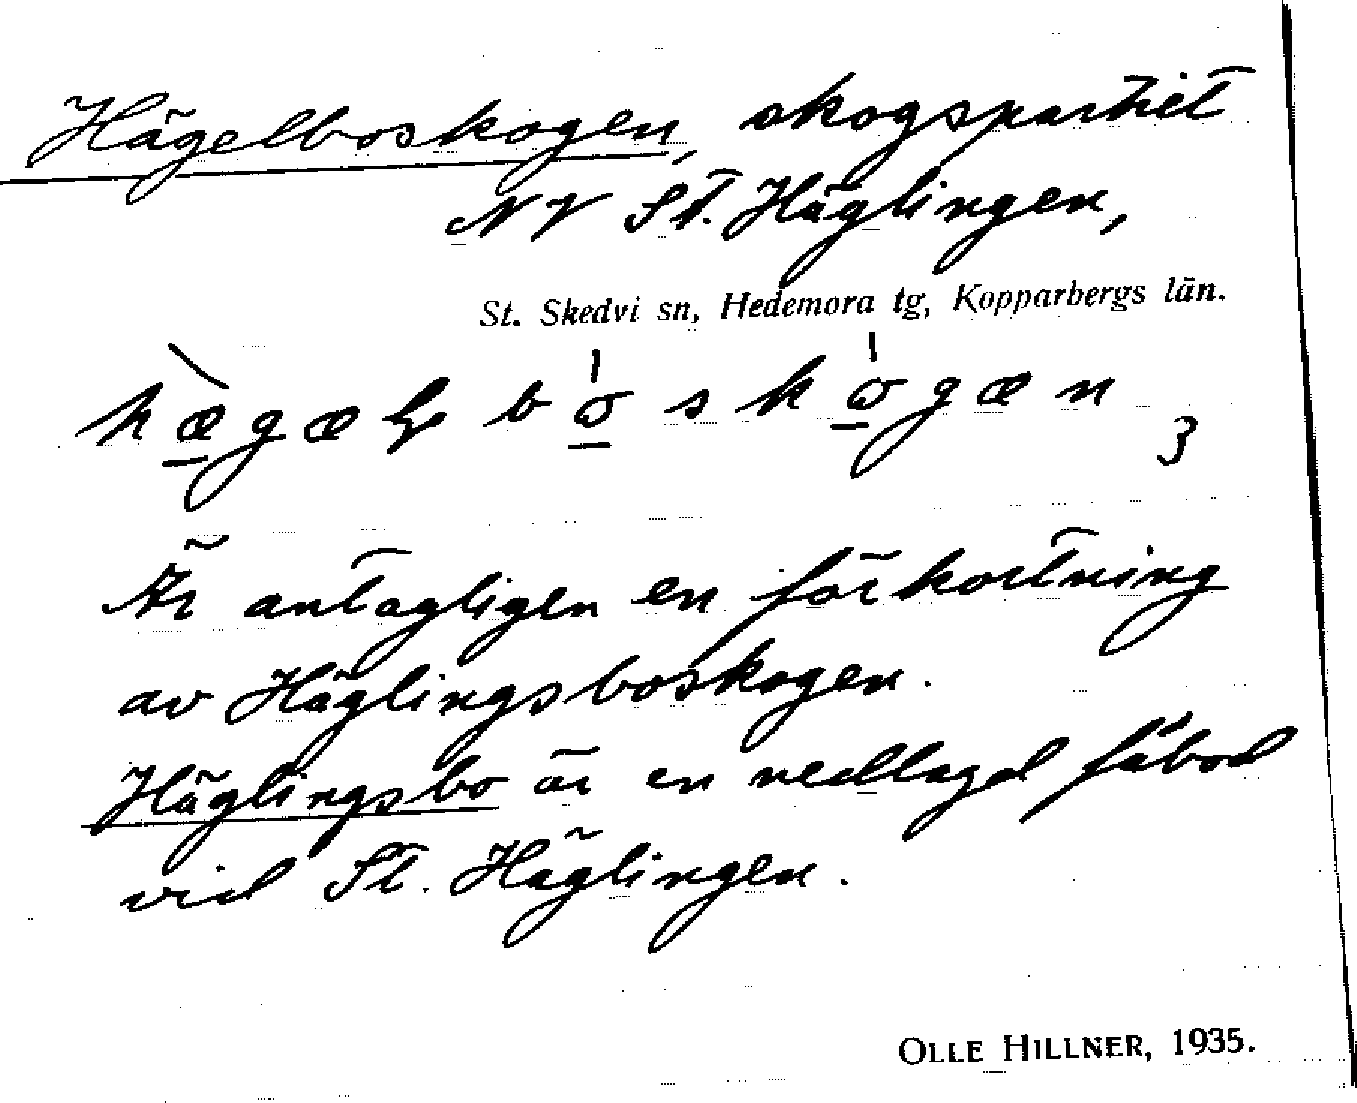 Hägelboskogen, skogspartiet
NV St. Häglingen,
St. Skedvi sn, Hedemora tg, Kopparbergs län.
Är antagligen en förkortning
av Häglingsboskogen.
Häglingsbo är en nedlagd fäbod
vid St. Häglingen.
OLLE HILLNER, 1935.